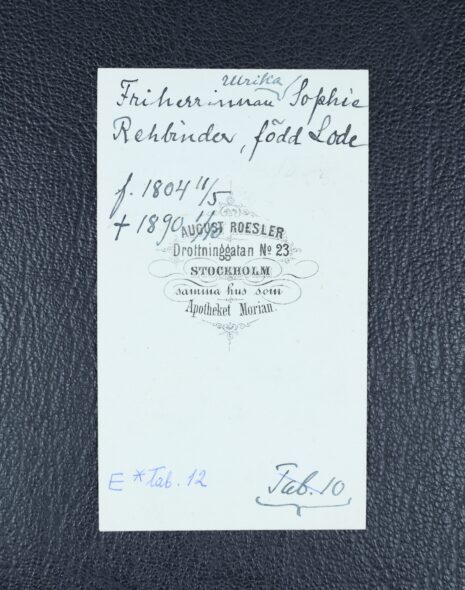 Ulrika
Friherrinnan Sophie
Rehbinder, född Lode
f. 1804 11/5
† 1890
AUGUST ROESLER
Drottninggatan № 23
STOCKHOLM
samma hus som
Apotheket Morian.
E * Tab. 12
Tab. 10